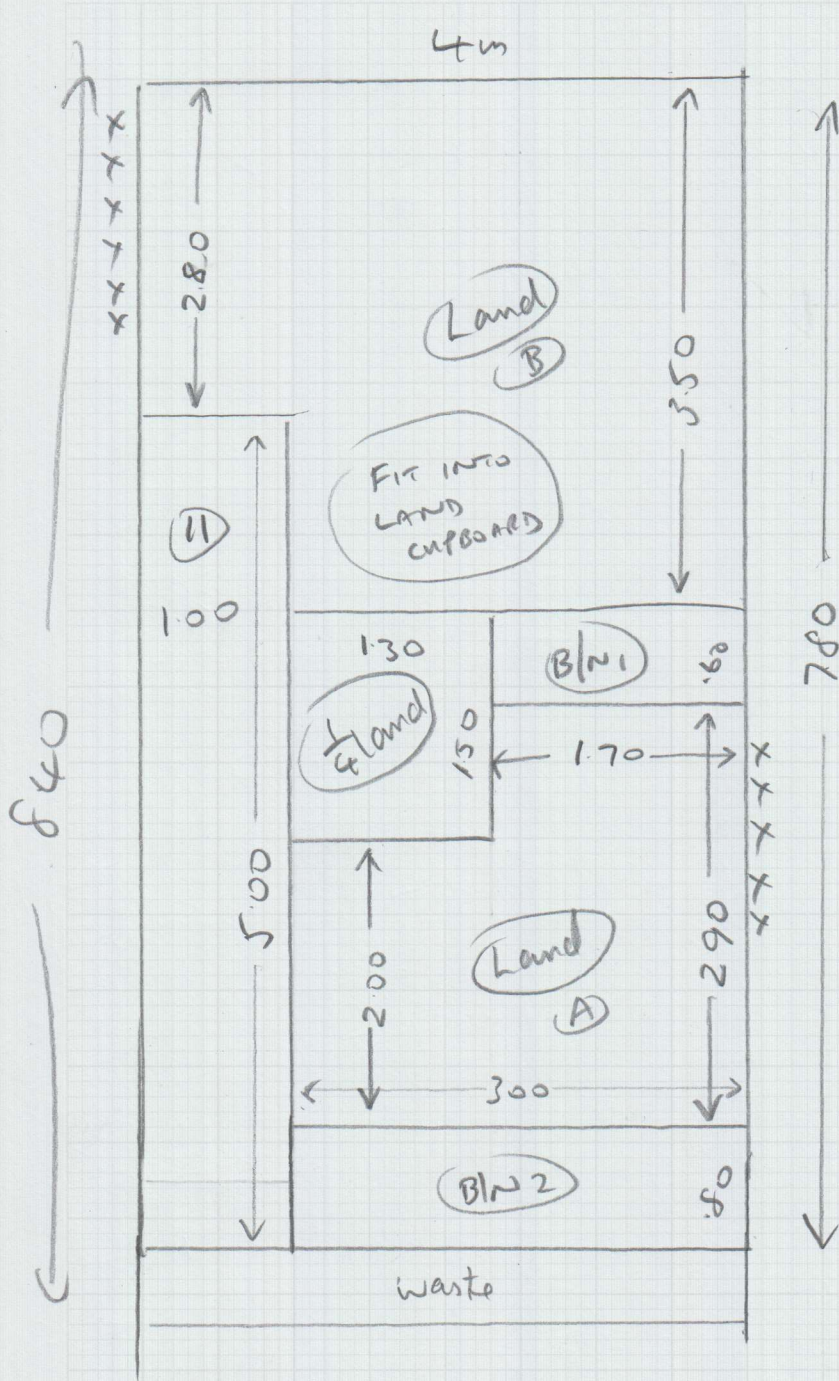 4m
x x x x x x
2.80
Land
B
3.50
FIT INTO
LAND
CUPBOARD
11
1.00
1.30
B/N1
.60
7.80
1/4 Land
1.50
1.70
x x x x x
840
5.00
2.00
Land
A
2.90
300
B/N 2
.80
waste